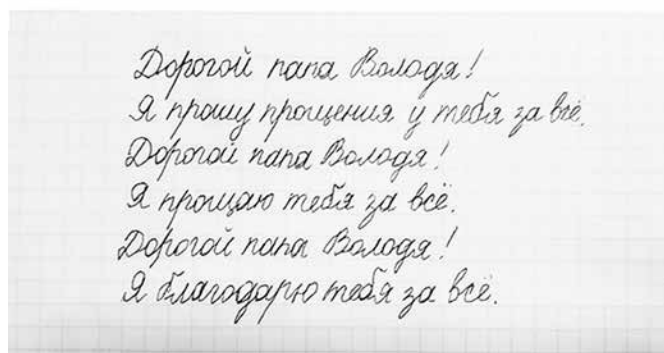 Дорогой папа Володя!
Я прошу прощения у тебя за всё.
Дорогой папа Володя!
Я прощаю тебя за всё.
Дорогой папа Володя!
Я благодарю тебя за всё.